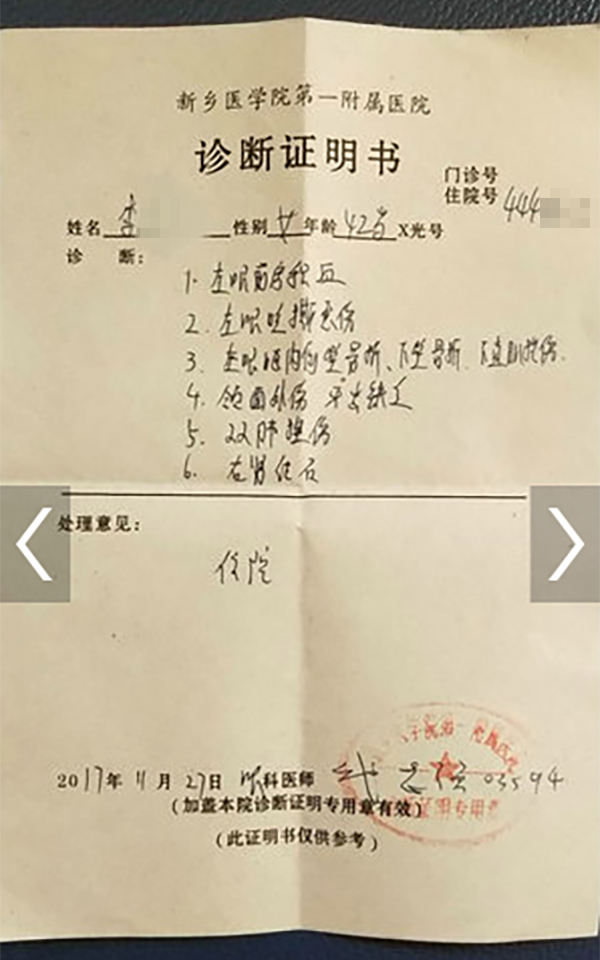 新乡医学院第一附属医院
诊断证明书
门诊号
住院号 444
姓名 李 性别 女 年龄 42岁 X光号
诊 断：
1. 左眼前房积血
2. 左眼挫伤
3. 左眼眶内侧壁骨折、下壁骨折、下直肌挫伤.
4. 颌面外伤 牙齿缺
5. 双肺挫伤
6. 右肾结石
处理意见：
住院
2017年 11月 27日 眼科医师 03594
(加盖本院诊断证明专用章有效)
(此证明书仅供参考)